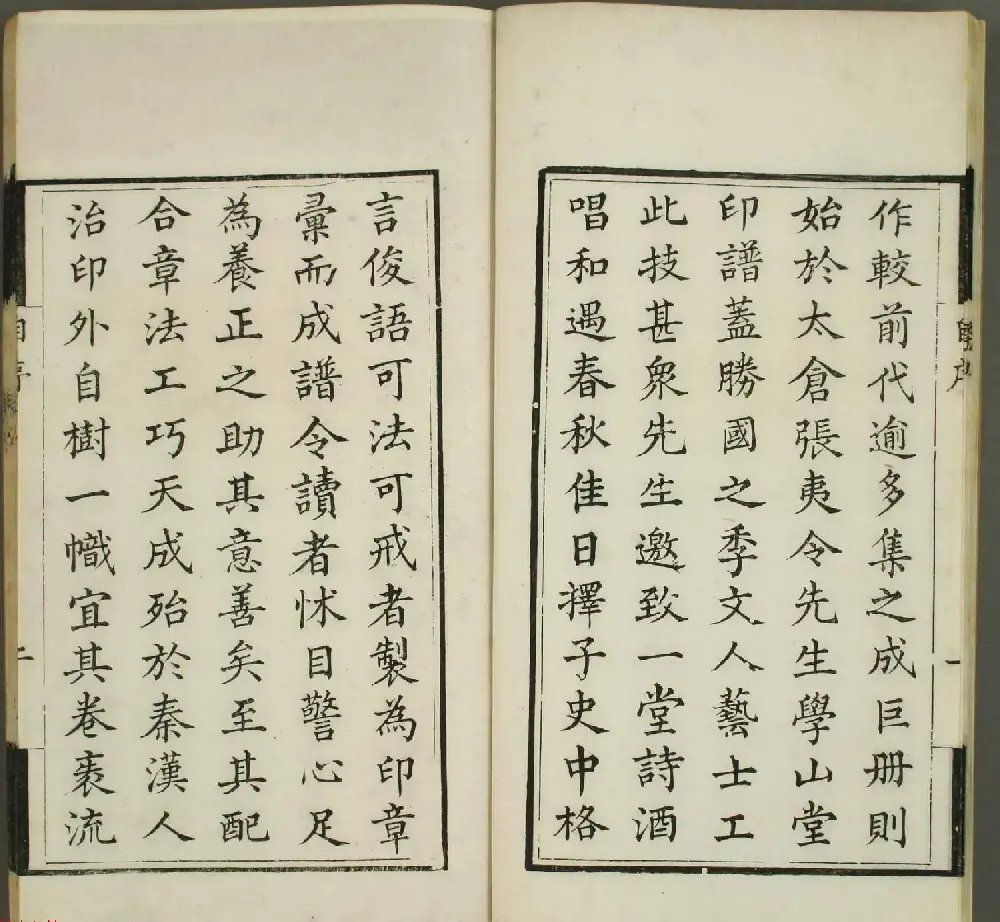 作較前代逾多集之成巨册則
始於太倉張夷令先生學山堂
印譜蓋勝國之季文人藝士工
此技甚衆先生邀致一堂詩酒
唱和遇春秋佳日擇子史中格
一
言俊語可法可戒者製為印章
彙而成譜令讀者怵目警心足
為養正之助其意善矣至其配
合章法工巧天成殆於秦漢人
治印外自樹一幟宜其卷袠流
自序
二